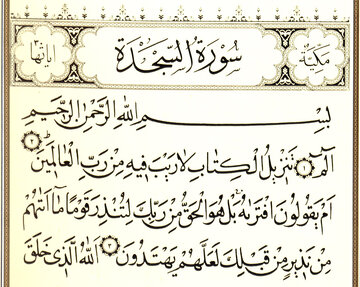 مكية سورة السجدة آياتها
بسم الله الرحمن الرحيم
الم ۝١ تنزيل الكتاب لا ريب فيه من رب العالمين ۝٢
ام يقولون افتريه بل هو الحق من ربك لتنذر قوما ما اتيهم
من نذير من قبلك لعلهم يهتدون ۝٣ الله الذي خلق